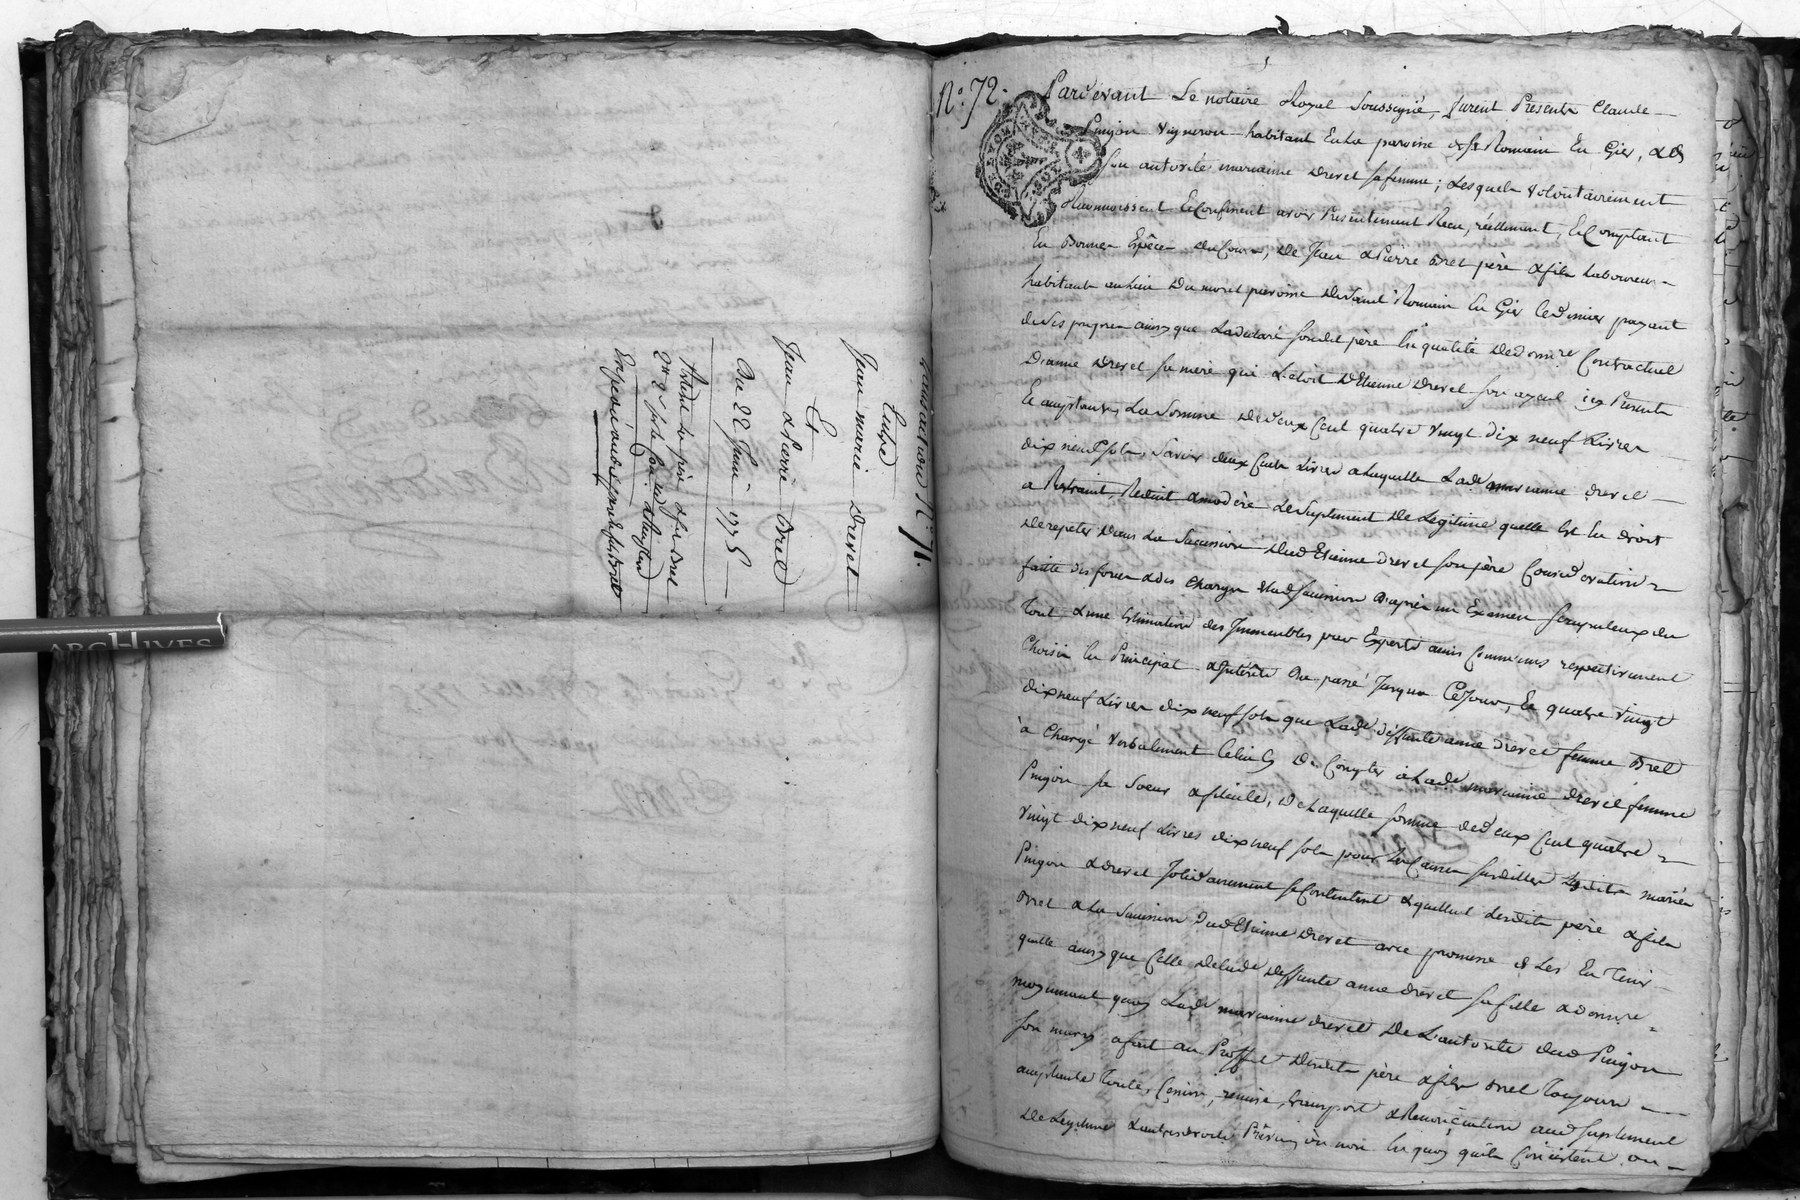 Renonciation N° 71.
Entre
Jean marie Drevet
Et
Jean & Pierre Bret
Du 22 Juin 1775
2me
ARCHIVES
N°. 72.
Pardevant Le notaire Royal Soussigné, furent Presents Claude
Pinjon Vigneron habitant En la paroisse de St Romain En Gier, & de
son autorité marianne Drevet sa femme; Lesquels volontairement
Reconnoissent & Confessent avoir Presentement Recu, réellement, & Comptant
En Bonnes Espèces Du Cours, De Jean & Pierre Bret père & fils Laboureurs
habitants au lieu Du moret paroisse De Saint Romain En Gier Ce Dernier payant
de ses propres ainsy que La declaré son dit père En qualité Contractuel
Danne Drevet sa mere qui L'étoit D'Etienne Drevet son ayeul icy Presents
& acceptants, La Somme De deux Cent quatre Vingt Dix neuf Livres
dix neuf sols, Savoir deux Cents Livres a Laquelle Lade marianne Drevet
a Restraint, Reduit & modéré Le Suplement De Legitime quelle Est En droit
De repeter Dans La Succession Dud Etienne Drevet son père Consideration
faite des forces & des Charges de lad Succession D'après un Examen Scrupuleux du
Tout & une Estimation des Immeubles par Experts amis Communs respectivement
Choisis En Principal & Intérêts Du passé Jusqua Ce Jour, & quatre Vingt
dix neuf Livres dix neuf sols que Lade. deffunte anne Drevet femme Bret
à Chargé Verbalement De Compter à Lade marianne Drevet femme
Pinjon sa Soeur & filleule, De Laquelle somme De deux Cent quatre
Vingt dix neuf Livres dix neuf sols pour Les Causes susdittes Lesdits mariés
Pinjon & Drevet Solidairement se Contentent & quittent Lesdits père & fils
Bret & La Succession Dud Etienne Drevet avec promesse de Les En Tenir
quitte ainsy que Celle de Lade deffunte anne Drevet sa fille & donne
moyennant quoy Lade marianne Drevet De L'autorité dud Pinjon
son mary a fait au Proffit Desdits père & fils Bret Toujours
acceptants Toute, Cession, remise, transport & Renonciation aud Suplement
De Legitime & autres droits Prévus, ou non En quoy quils Consistent ou